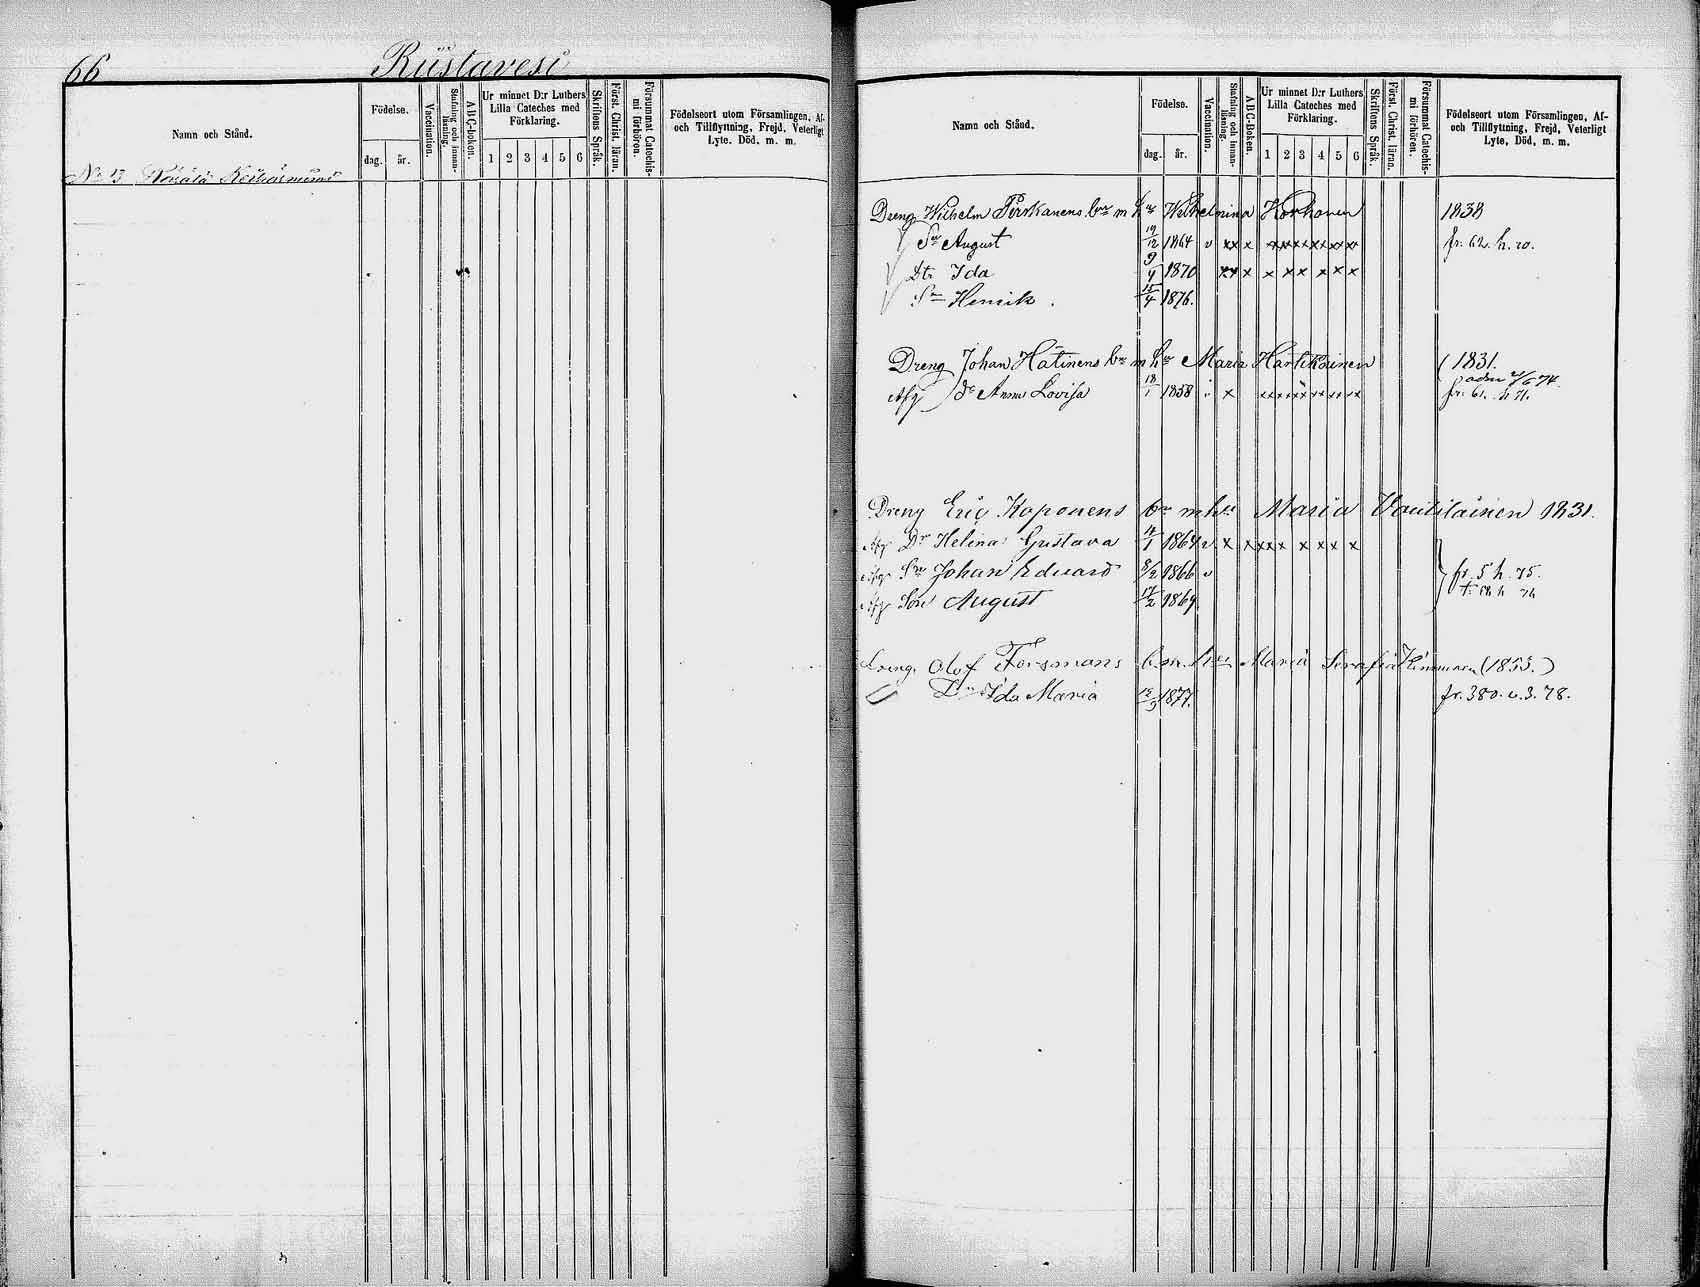 66 Riistavesi
Namn och Stånd.
Födelse.
dag. år.
Vaccination.
Stafning och innanläsning.
ABC-boken.
Ur minnet D:r Luthers Lilla Cateches med Förklaring.
1 2 3 4 5 6
Skriftens Språk.
Först. Christ. läran.
Försummat Catechismi förhören.
Födelseort utom Församlingen, Af- och Tillflyttning, Frejd, Veterligt Lyte, Död, m. m.
No 13
Namn och Stånd.
Födelse.
dag. år.
Vaccination.
Stafning och innanläsning.
ABC-Boken.
Ur minnet D:r Luthers Lilla Cateches med Förklaring.
1 2 3 4 5 6
Skriftens Språk.
Först. Christ. läran.
Försummat Catechismi förhören.
Födelseort utom Församlingen, Af- och Tillflyttning, Frejd, Veterligt Lyte, Död, m. m.
Dreng Wilhelm Pirskanens bn m hu Wilhelmina Korhonen 1838
Sn August 19/12 1864 v xx x v xxxxxxxx fr. 62. h. 70.
Dtr Ida 9/4 1870 xx x x xx x x x
Sn Henrik 15/4 1876.
Dreng Johan Hätinens bn m hu Maria Hartikainen (1831.
Afg Dr Anna Lovisa 18/1 1858 v x xxxxxxxx fr. 61. h 71.
Dreng Eric Koponens bn m hu Maria Vautilainen 1831.
Afg Dr Helina Gustava 14/1 1864 v x xxxx x x x x
Afg Sn Johan Eduard 8/2 1866 v fr. 5 h. 75.
Afg Son August 17/2 1869
Dreng Olof Forsmans bn m. hu Maria Serafia Kinnunen (1853.)
Dr Ida Maria 12/9 1877. fr. 380. v. 3. 78.